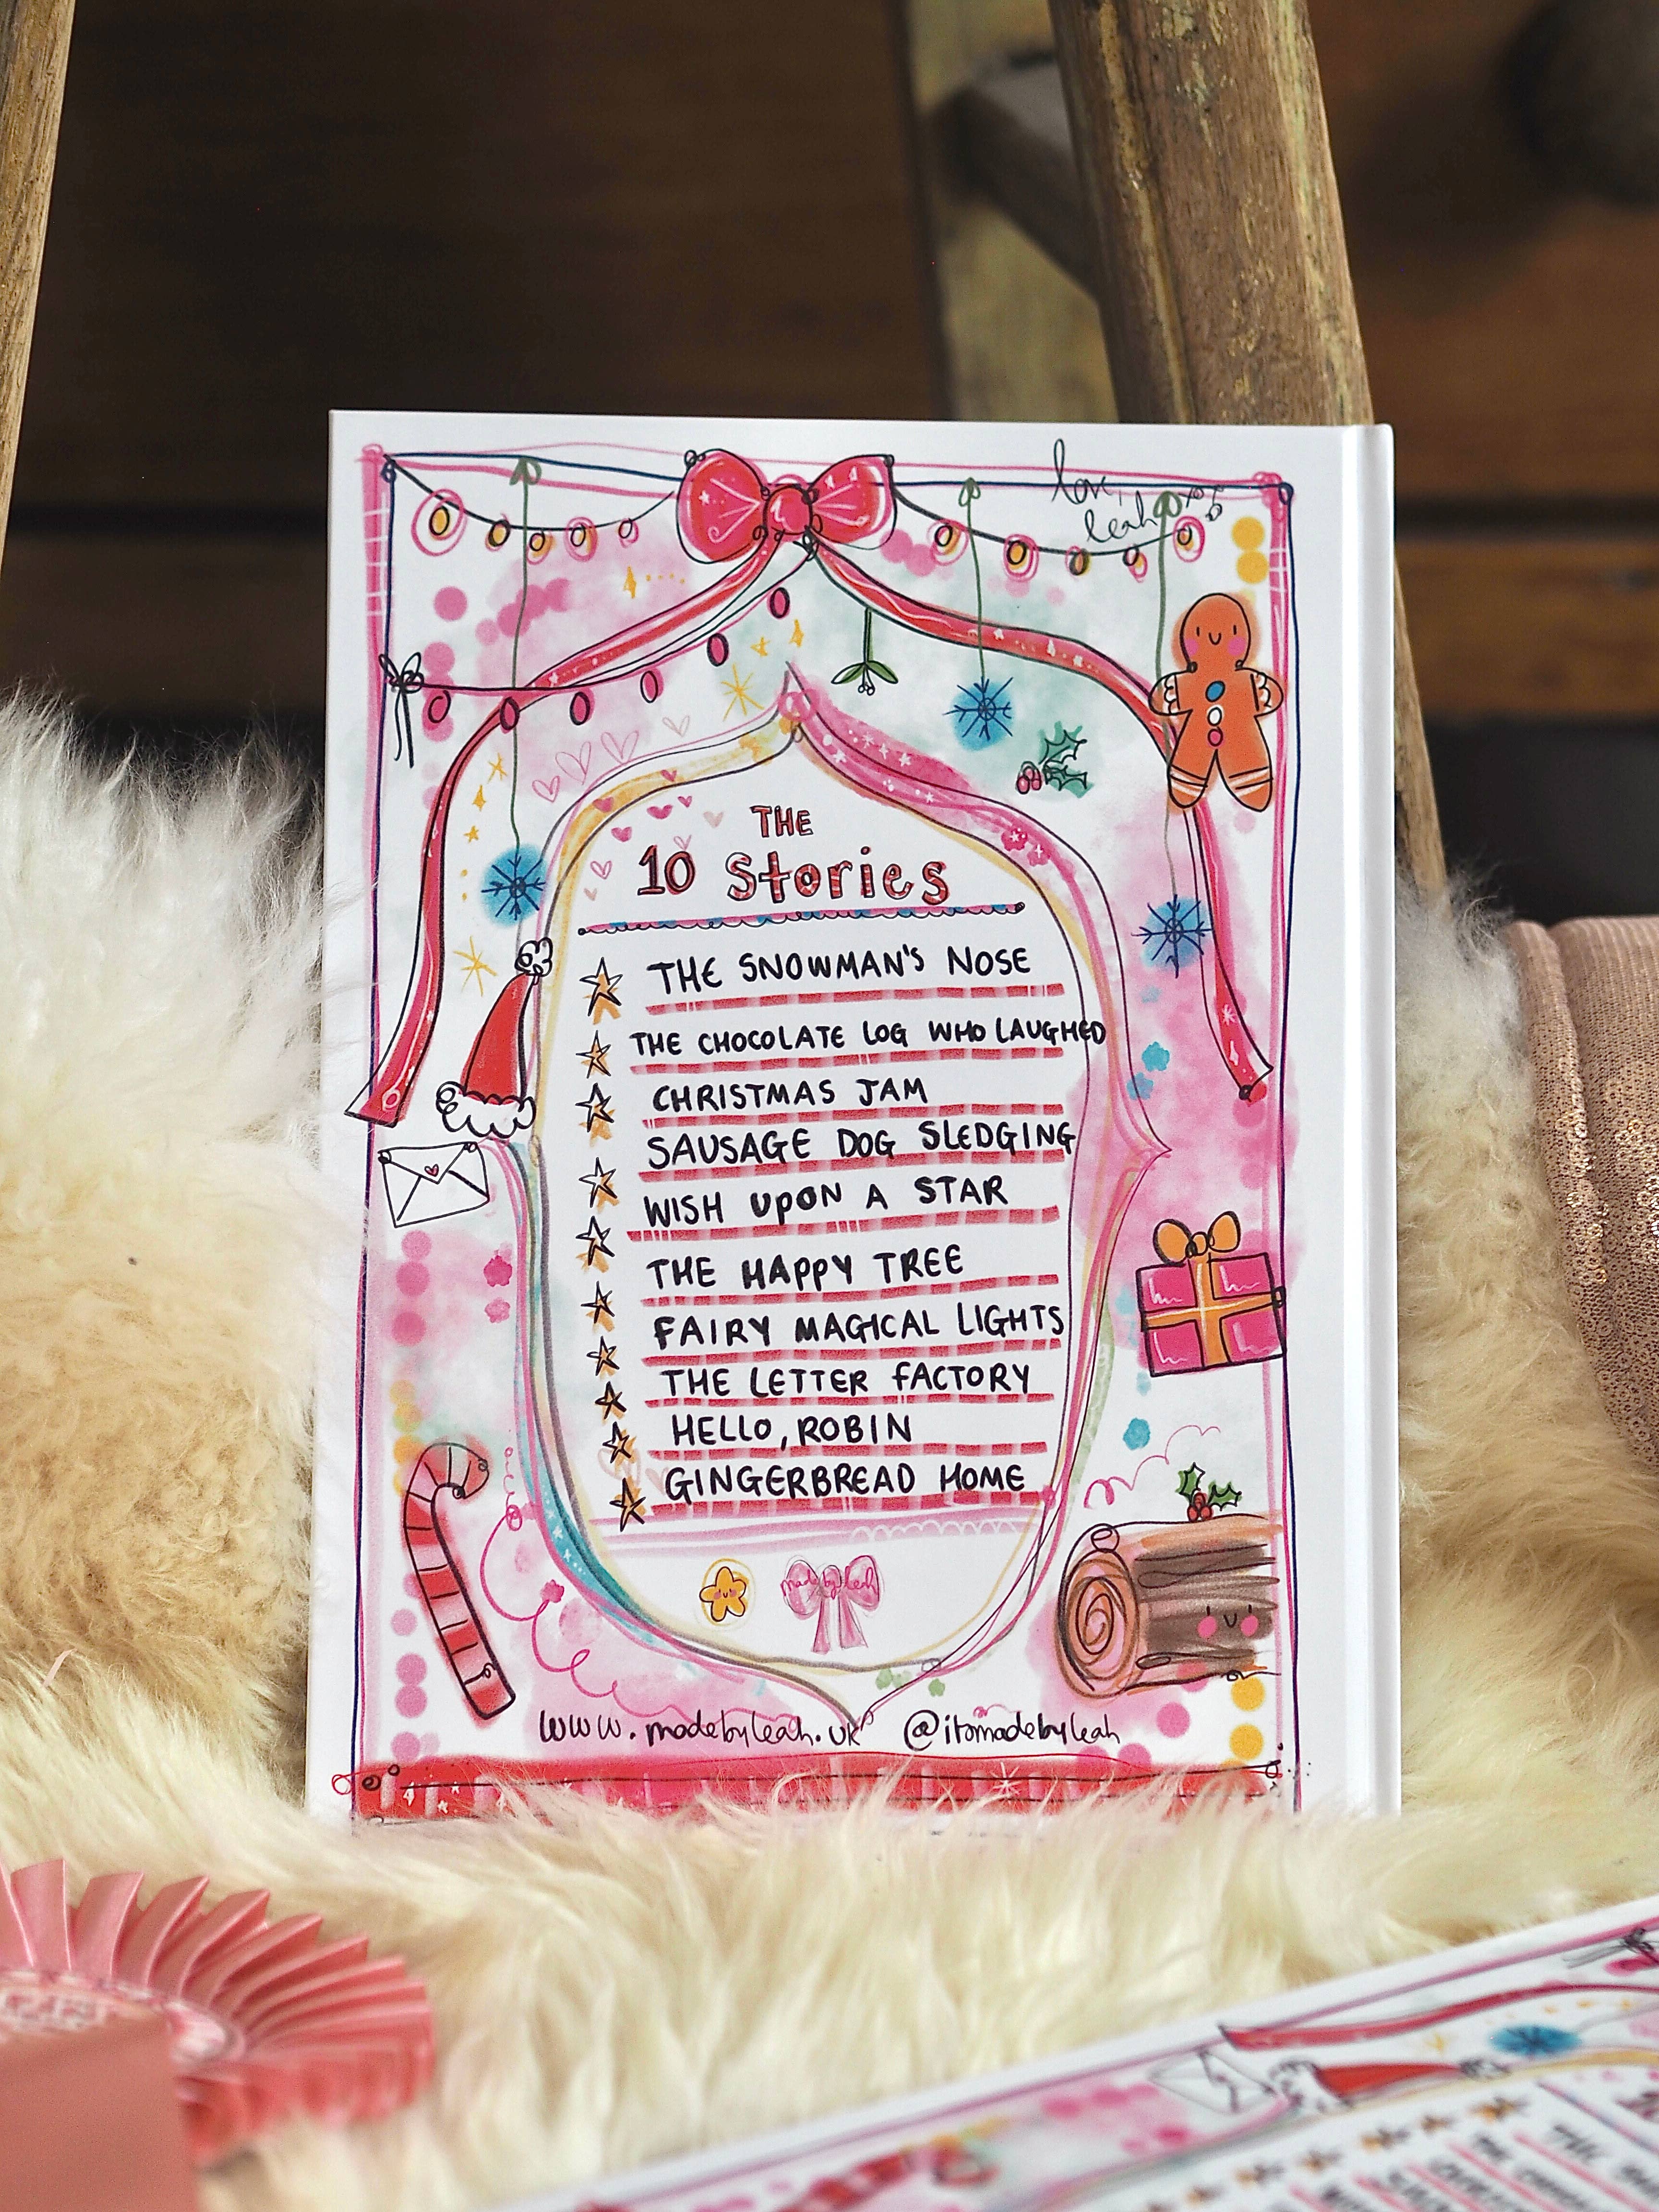 love,
leah xxx
THE
10 Stories
THE SNOWMAN'S NOSE
THE CHOCOLATE LOG WHO LAUGHED
CHRISTMAS JAM
SAUSAGE DOG SLEDGING
WISH UPON A STAR
THE HAPPY TREE
FAIRY MAGICAL LIGHTS
THE LETTER FACTORY
HELLO, ROBIN
GINGERBREAD HOME
made by leah
www.madebyleah.uk @itsmadebyleah